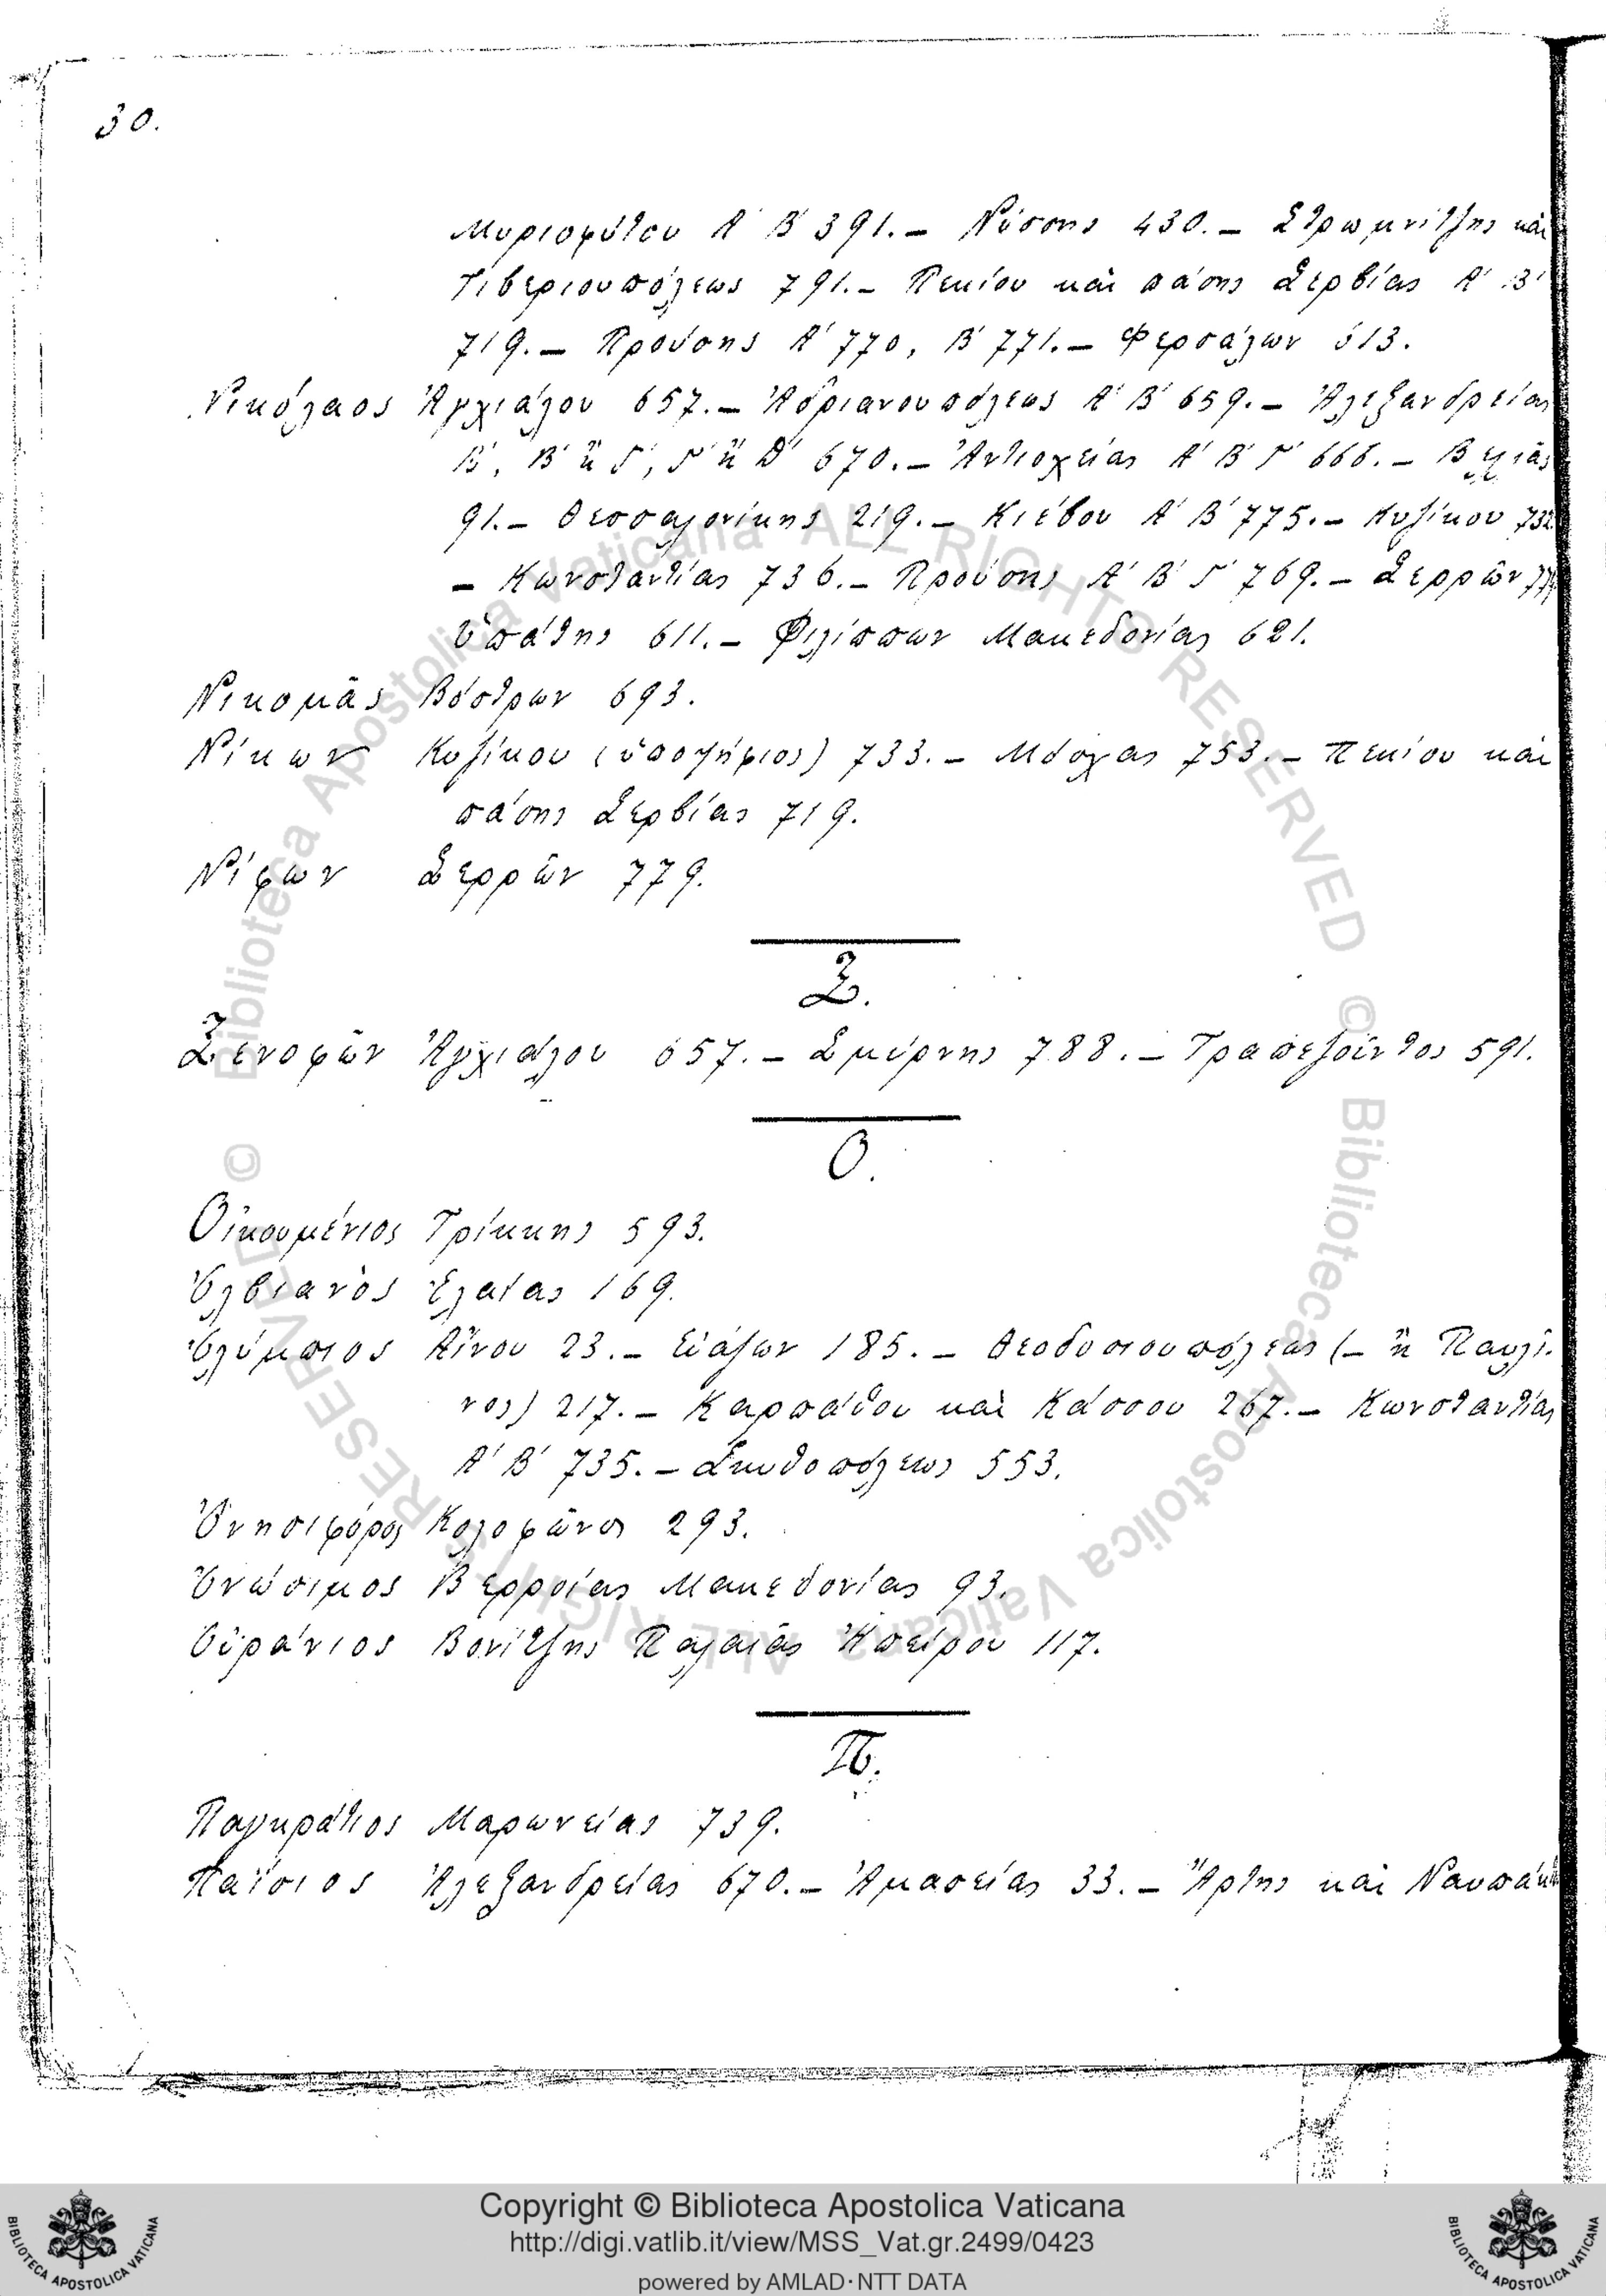 30.
Μυριοφύτου Α΄ Β΄ 391.– Νύσσης 430.– Στρωμνίτζης καὶ
Τιβεριουπόλεως 791.– Πεκίου καὶ πάσης Σερβίας Α΄ Β΄
719.– Προύσης Α΄ 770, Β΄ 771.– Φερσάλων 613.
Νικόλαος Ἀγχιάλου 657.– Ἀδριανουπόλεως Α΄ Β΄ 659.– Ἀλεξανδρείας
Β΄, Β΄ ἢ Γ΄, Γ΄ ἢ Δ΄ 670.– Ἀντιοχείας Α΄ Β΄ Γ΄ 666.–
91.– Θεσσαλονίκης 219.– Κιέβου Α΄ Β΄ 775.– Κυζίκου 732
– Κωνσταντίας 736.– Προύσης Α΄ Β΄ Γ΄ 769.– Σερρῶν
Ὑπάτης 611.– Φιλίππων Μακεδονίας 621.
Νικομᾶς Βόστρων 693.
Νίκων Κυζίκου (ὑποψήφιος) 733.– Μόσχας 753.– Πεκίου καὶ
πάσης Σερβίας 719.
Νίφων Σερρῶν 779.
Ξ.
Ξενοφῶν Ἀγχιάλου 657.– Σμύρνης 788.– Τραπεζοῦντος 591.
Ο.
Οἰκουμένιος Τρίκκης 593.
Ὀλβιανὸς Ἐλαίας 169.
Ὀλύμπιος Αἴνου 23.– Εὐάζων 185.– Θεοδοσιουπόλεως (– ἢ Παυλῖ-
νος) 217.– Καρπάθου καὶ Κάσσου 267.– Κωνσταντίας
Α΄ Β΄ 735.– Σκυθοπόλεως 553.
Ὀνησιφόρος Κολοφῶνος 293.
Ὀνήσιμος Βερροίας Μακεδονίας 93.
Οὐράνιος Βονίτζης Παλαιᾶς Ἠπείρου 117.
Π.
Παγκράτιος Μαρωνείας 739.
Παΐσιος Ἀλεξανδρείας 670.– Ἀμασείας 33.– Ἄρτης καὶ Ναυπάκ
© Biblioteca Apostolica Vaticana ALL RIGHTS RESERVED
© Biblioteca Apostolica Vaticana ALL RIGHTS RESERVED
Copyright © Biblioteca Apostolica Vaticana
http://digi.vatlib.it/view/MSS_Vat.gr.2499/0423
powered by AMLAD·NTT DATA
BIBLIOTECA APOSTOLICA VATICANA
BIBLIOTECA APOSTOLICA VATICANA